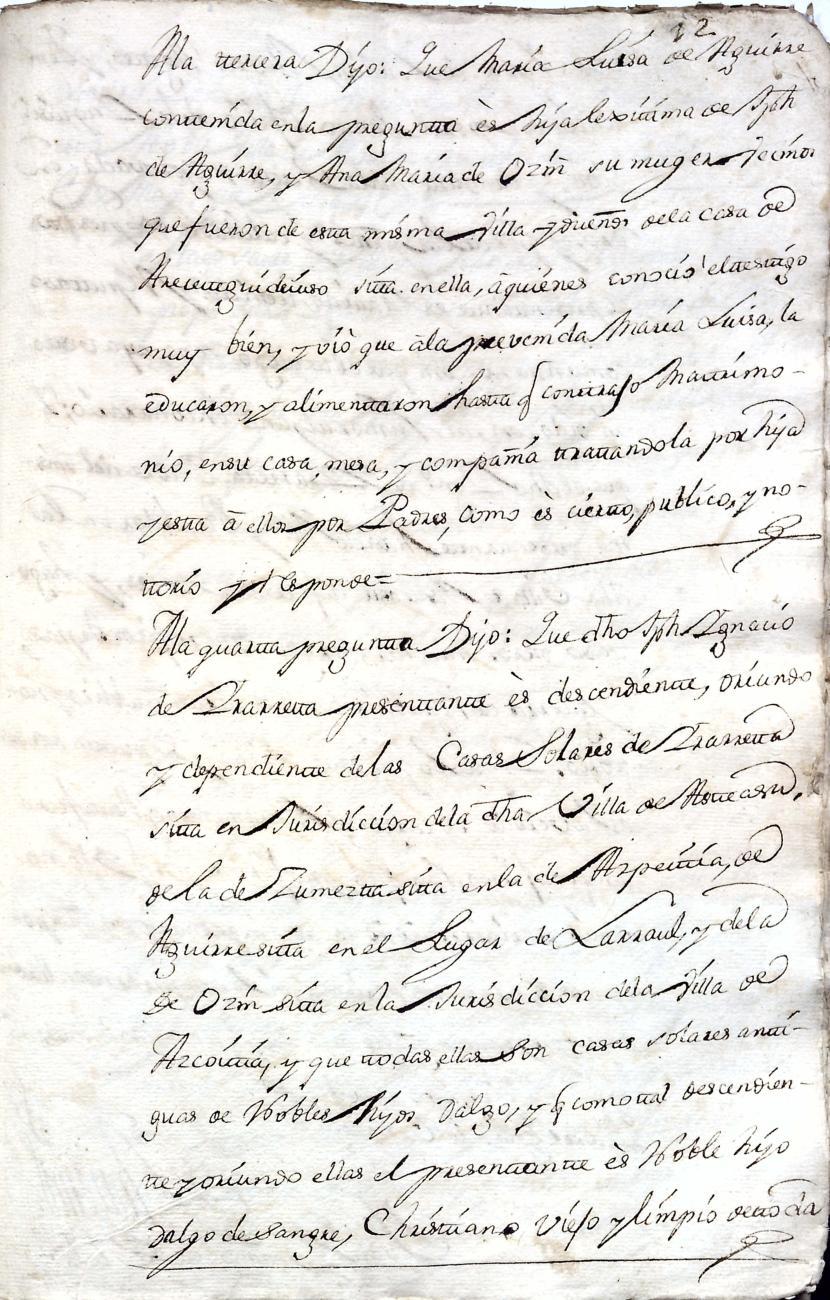 12
Ala tercera Dijo: Que Maria Luisa de Aguirre
contenida enla pregunta ès hija lexitima de Jph
de Aguirre, y Ana Maria de Ozin su muger Vecinos
que fueron de esta misma Villa y dueños dela casa de
sita en ella, àquienes conociò eltestigo
muy bien, y viò que àla prevenida Maria Luisa, la
educaron, y alimentaron hasta q contrajo Matrimo-
nio, ensu casa, mesa, y compañia tratandola por hija
yesta à ellos por Padres, como ès cierto, publico, y no-
torio y Responde=
Ala quarta pregunta Dijo: Que dho Jph Ignacio
de Ytarreta presentante ès descendiente, oriundo
y dependiente delas Casas Solares de Ytarreta
sita en Jurisdiccion dela dha Villa de Asteasu,
de la de Zumezta sita enla de Azpeitia, de
Aguirre sita en el Lugar de Larraul, y dela
de Ozin sita en la Jurisdiccion dela Villa de
Azcoitia, y que todas ellas son casas solares anti-
guas de Nobles hijos Dalgo, y q comotal descendien-
te y oriundo ellas el presentante ès Noble hijo
dalgo de sangre, Christiano viejo y limpio de toda